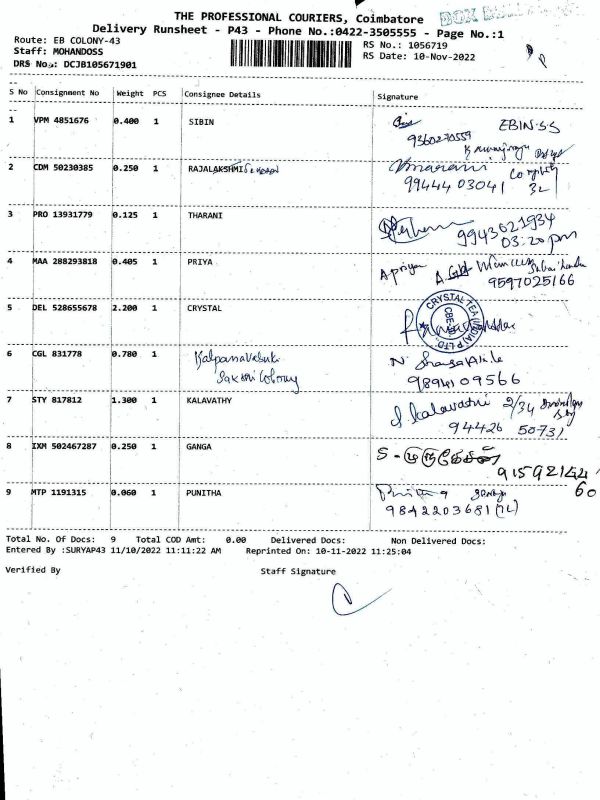 THE PROFESSIONAL COURIERS, Coimbatore
Delivery Runsheet - P43 - Phone No.:0422-3505555 - Page No.:1
Route: EB COLONY-43
Staff: MOHANDOSS
DRS No.: DCJB105671901
RS No.: 1056719
RS Date: 10-Nov-2022
S No Consignment No Weight PCS Consignee Details Signature
1 VPM 4851676 0.400 1 SIBIN
EBIN.S.S
9360270559
2 CDM 50230385 0.250 1 RAJALAKSHMI
99444 03041
3 PRO 13931779 0.125 1 THARANI
9943621934
03:20 pm
4 MAA 288293818 0.405 1 PRIYA
A priya
9597025166
5 DEL 528655678 2.200 1 CRYSTAL
CRYSTAL TEA (INDIA) P LTD.
CBE
6 CGL 831778 0.780 1
9894109566
7 STY 817812 1.300 1 KALAVATHY
S Kalavathi 2/34
94426 50731
8 IXM 502467287 0.250 1 GANGA
S - முருகேசன்
9159214460
9 MTP 1191315 0.060 1 PUNITHA
9842203681
Total No. Of Docs: 9 Total COD Amt: 0.00 Delivered Docs: Non Delivered Docs:
Entered By :SURYAP43 11/10/2022 11:11:22 AM Reprinted On: 10-11-2022 11:25:04
Verified By Staff Signature